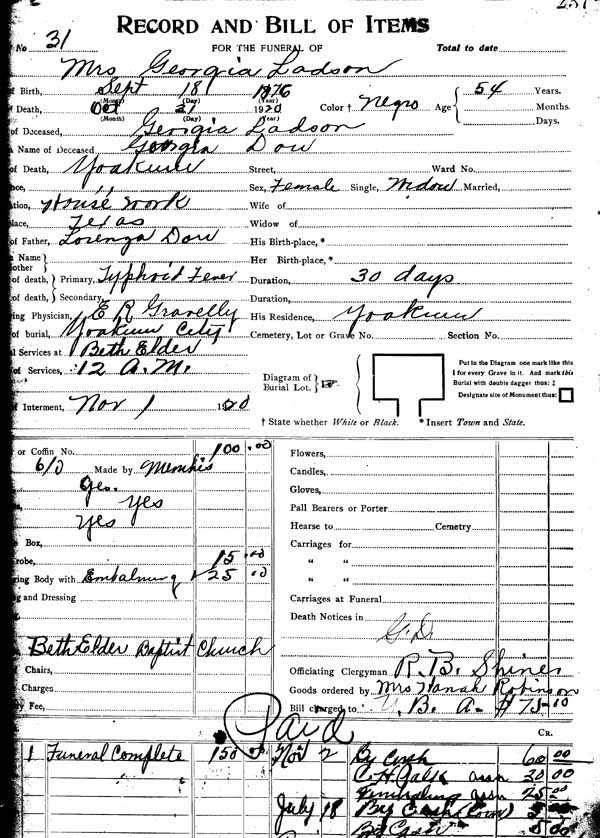 RECORD AND BILL OF ITEMS
No 31 FOR THE FUNERAL OF Total to date
Mrs Georgia Ladson
of Birth, Sept 18 1876 54 Years.
(Month) (Day) (Year) Color † Negro Age Months.
Death, Oct 31 1920 Days.
(Month) (Day) (Year)
of Deceased, Georgia Ladson
Name of Deceased Georgia Dow
of Death, Yoakum Street, Ward No.
Sex, Female Single, Widow Married,
tion, House work Wife of
lace, Texas Widow of
of Father, Lorenza Dow His Birth-place, *
Name
other Her Birth-place, *
of death, Primary, Typhoid Fever Duration, 30 days
of death, Secondary, Duration,
ing Physician, E R Gravelly His Residence, Yoakum
of burial, Yoakum City Cemetery, Lot or Grave No. Section No.
l Services at Beth Elder
of Services, 12 A.M.
Diagram of Burial Lot.
Put in the Diagram one mark like this
for every Grave in it. And mark this
Burial with double dagger thus: ‡
Designate site of Monument thus:
f Interment, Nov 1 1920
† State whether White or Black. * Insert Town and State.
or Coffin No. 100.00 Flowers,
6/0 Made by Memphis Candles,
Yes Gloves,
Yes Pall Bearers or Porter
Yes Hearse to Cemetry
Box, Carriages for
robe, 15.00 " "
ring Body with Embalming 25.00 " "
g and Dressing Carriages at Funeral
Death Notices in
G.D.
Beth Elder Baptist Church
Chairs, Officiating Clergyman R. B. Shines
Charges Goods ordered by Mrs Hanah Robinson
ry Fee, Bill charged to U. B. A. $75.00
Paid
CR.
1 Funeral Complete 150 Nov 2 By Cash 60 00
assn 20 00
assn 25
July 18 By Cash
By Cash 5 00